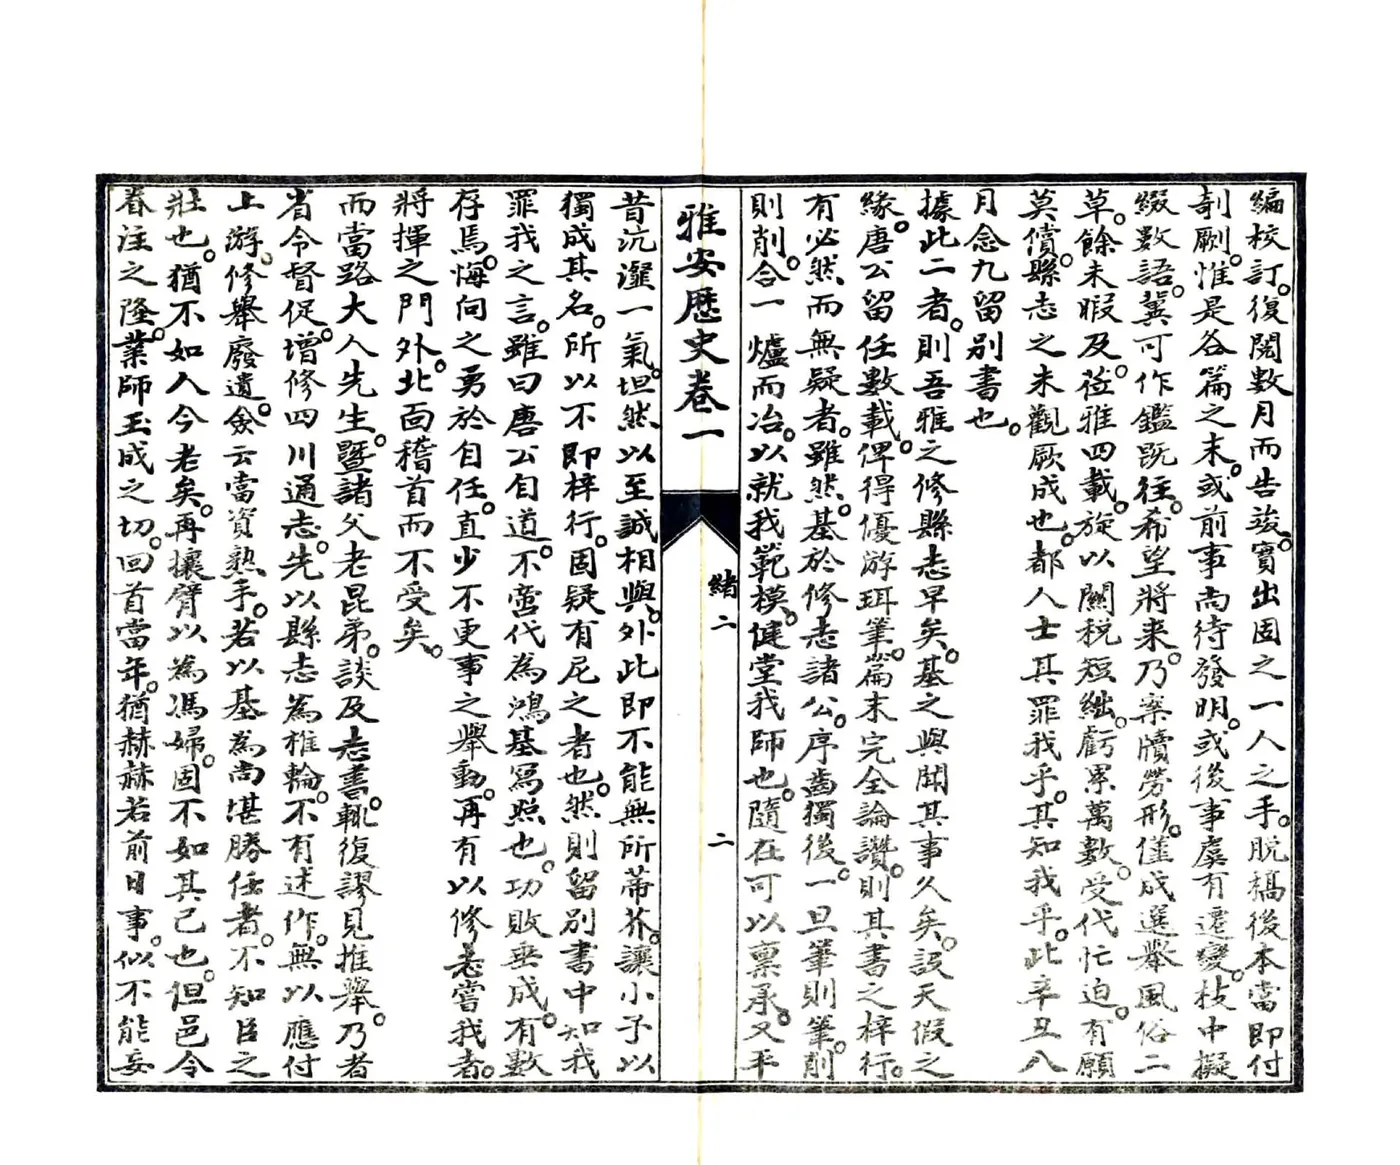 編校訂。復閱數月而告竣。實出固之一人之手。脫稿後本當即付
剞劂。惟是各篇之末。或前事尚待發明。或後事虞有遷變。枝中擬
綴數語。冀可作鑑既往。希望將来。乃案牘勞形。僅成選舉風俗二
草。餘未暇及。莅雅四載。旋以關税短絀。虧累萬數。受代忙迫。有願
莫償。縣志之未觀厥成也。都人士其罪我乎。其知我乎。此辛丑八
月念九留别書也。
據此二者。則吾雅之修縣志早矣。基之與聞其事久矣。設天假之
緣。唐公留任數載。俾得優游珥筆。篇末完全論讚。則其書之梓行。
有必然而無疑者。雖然。基於修志諸公。序齒獨後。一旦筆則筆。削
則削。合一爐而冶。以就我範模。健堂我師也。隨在可以禀承。又平
雅安歷史卷一
緒二
二
昔沆瀣一氣。坦然以至誠相與。外此即不能無所蒂芥。讓小子以
獨成其名。所以不即梓行。固疑有尼之者也。然則留别書中知我
罪我之言。雖曰唐公自道。不啻代為鴻基寫照也。功敗垂成。有數
存焉。悔向之勇於自任。直少不更事之舉動。再有以修志嘗我者。
將揮之門外。北面稽首而不受矣。
而當路大人先生。暨諸父老昆弟。談及志書。輒復謬見推舉。乃者
省令督促。增修四川通志。先以縣志為椎輪。不有述作。無以應付
上游。修舉廢遺。僉云當資熟手。若以基為尚堪勝任者。不知臣之
壯也。猶不如人今老矣。再攘臂以為馮婦。固不如其已也。但邑令
眷注之隆。業師玉成之切。回首當年。猶赫赫若前日事。似不能妄